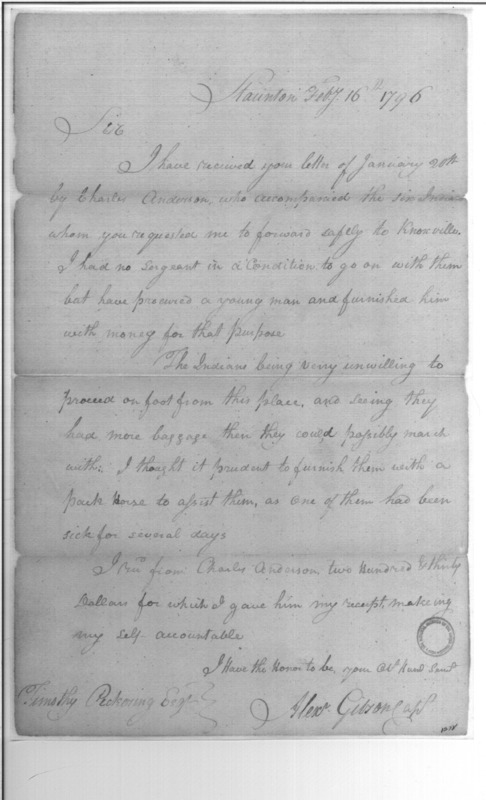 Staunton Feby. 16th 1796
Sir
I have received your letter of January 20th
by Charles Anderson, who accompanied the six Indians
whom you requested me to forward safely to Knoxville.
I had no Sergeant in a Condition to go on with them
but have procured a young man and furnished him
with money for that purpose
The Indians being verry unwilling to
proceed on foot from this place, and seeing they
had more baggage then they could possibly march
with; I thought it prudent to furnish them with a
pack Horse to assist them, as one of them had been
sick for several days
I recd. from Charles Anderson two Hundred & thirty
Dollars for which I gave him my receipt, makeing
my self accountable
I Have the Honor to be, your Obt. Humb Servt.
Timothy Pickering Esqr.
Alexr. Gibson Capt.